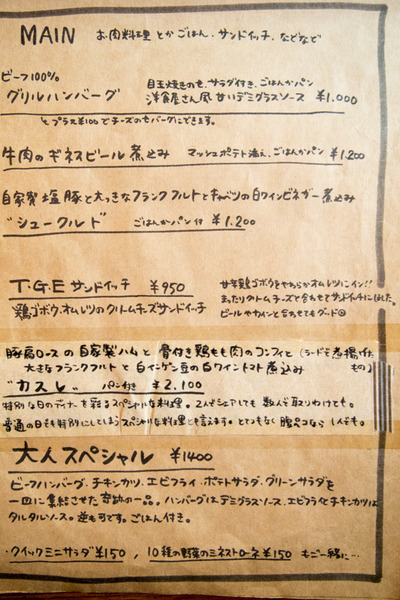 MAIN お肉料理とかごはん、サンドイッチ、などなど
ビーフ100%
グリルハンバーグ
目玉焼きのせ、サラダ付き、ごはんかパン
洋食屋さん風 甘いデミグラスソース ¥1,000
プラス¥100でチーズのせバーグにできます。
牛肉のギネスビール煮込み マッシュポテト添え、ごはんかパン付 ¥1,200
自家製塩豚と大っきなフランクフルトとキャベツの白ワインビネガー煮込み
"シュークルト" ごはんかパン付 ¥1,200
T.G.E サンドイッチ ¥950
鶏ゴボウオムレツのクリームチーズサンドイッチ
鶏ゴボウをやわらかオムレツにイン!!
まったりクリームチーズと合わせてサンドイッチにしました。
ビールやワインと合わせてもグード
豚肩ロースの自家製ハムと骨付き鶏もも肉のコンフィと(ラードで煮揚げたもの)
大きなフランクフルトと白インゲン豆の白ワイントマト煮込み
"カスレ" パン付き ¥2,100
特別な日のディナーを彩るスペシャルな料理。2人でシェアしても数人で取りわけても。
普通の日も特別にしてしまうスペシャルな料理とも言えます。とてつもなく腹ペコなら1人でも。
大人スペシャル ¥1400
ビーフハンバーグ、チキンカツ、エビフライ、ポテトサラダ、グリーンサラダを
一皿に集結させた奇跡の一品。ハンバーグはデミグラスソース、エビフライとチキンカツは
タルタルソース。逆も可です。ごはん付き。
・クイックミニサラダ¥150 , 10種の野菜のミネストローネ¥150 もご一緒に…